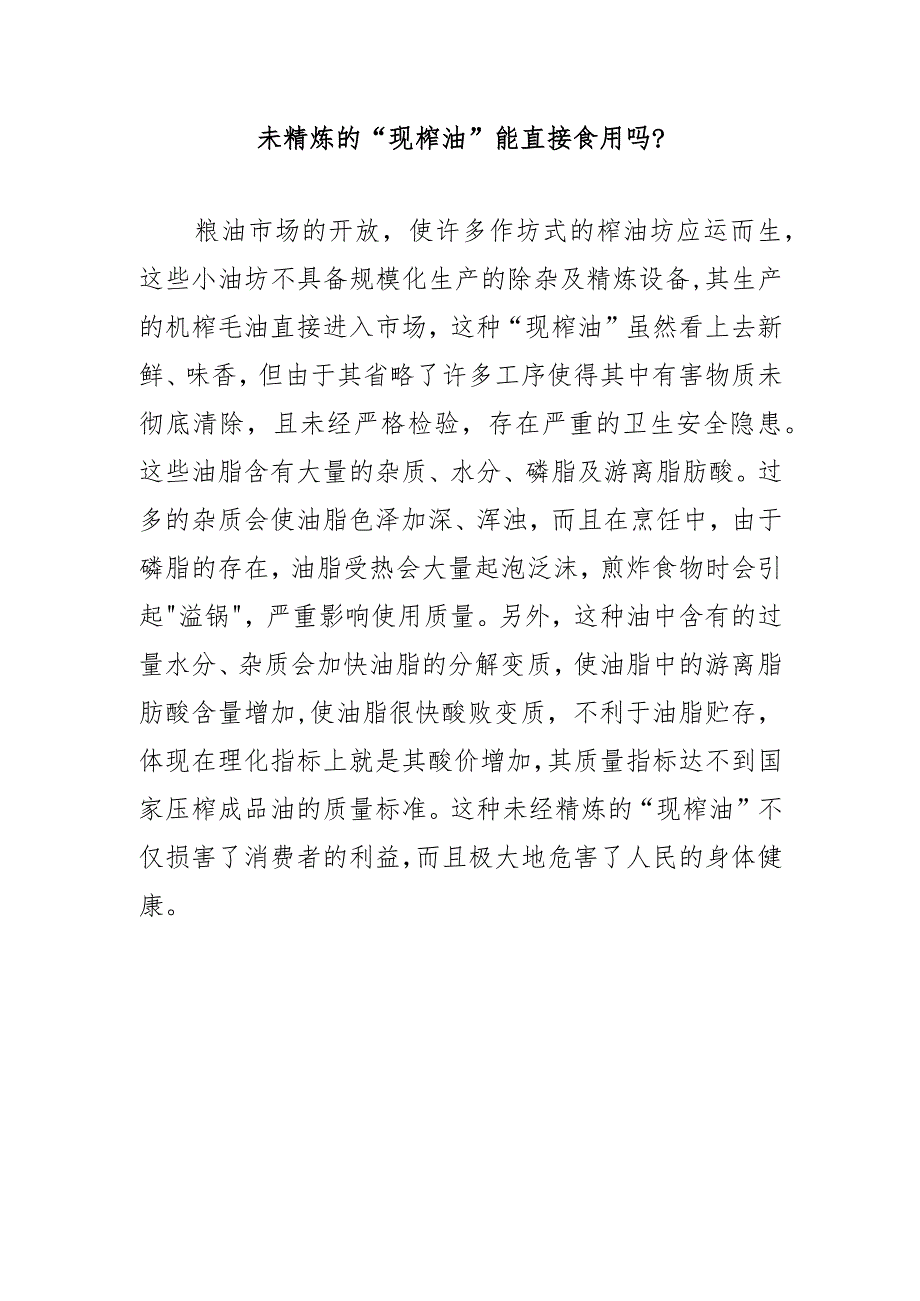 未精炼的“现榨油”能直接食用吗?
粮油市场的开放，使许多作坊式的榨油坊应运而生，
这些小油坊不具备规模化生产的除杂及精炼设备,其生产
的机榨毛油直接进入市场，这种“现榨油”虽然看上去新
鲜、味香，但由于其省略了许多工序使得其中有害物质未
彻底清除，且未经严格检验，存在严重的卫生安全隐患。
这些油脂含有大量的杂质、水分、磷脂及游离脂肪酸。过
多的杂质会使油脂色泽加深、浑浊，而且在烹饪中，由于
磷脂的存在，油脂受热会大量起泡泛沫，煎炸食物时会引
起"溢锅"，严重影响使用质量。另外，这种油中含有的过
量水分、杂质会加快油脂的分解变质，使油脂中的游离脂
肪酸含量增加,使油脂很快酸败变质，不利于油脂贮存，
体现在理化指标上就是其酸价增加，其质量指标达不到国
家压榨成品油的质量标准。这种未经精炼的“现榨油”不
仅损害了消费者的利益，而且极大地危害了人民的身体健
康。